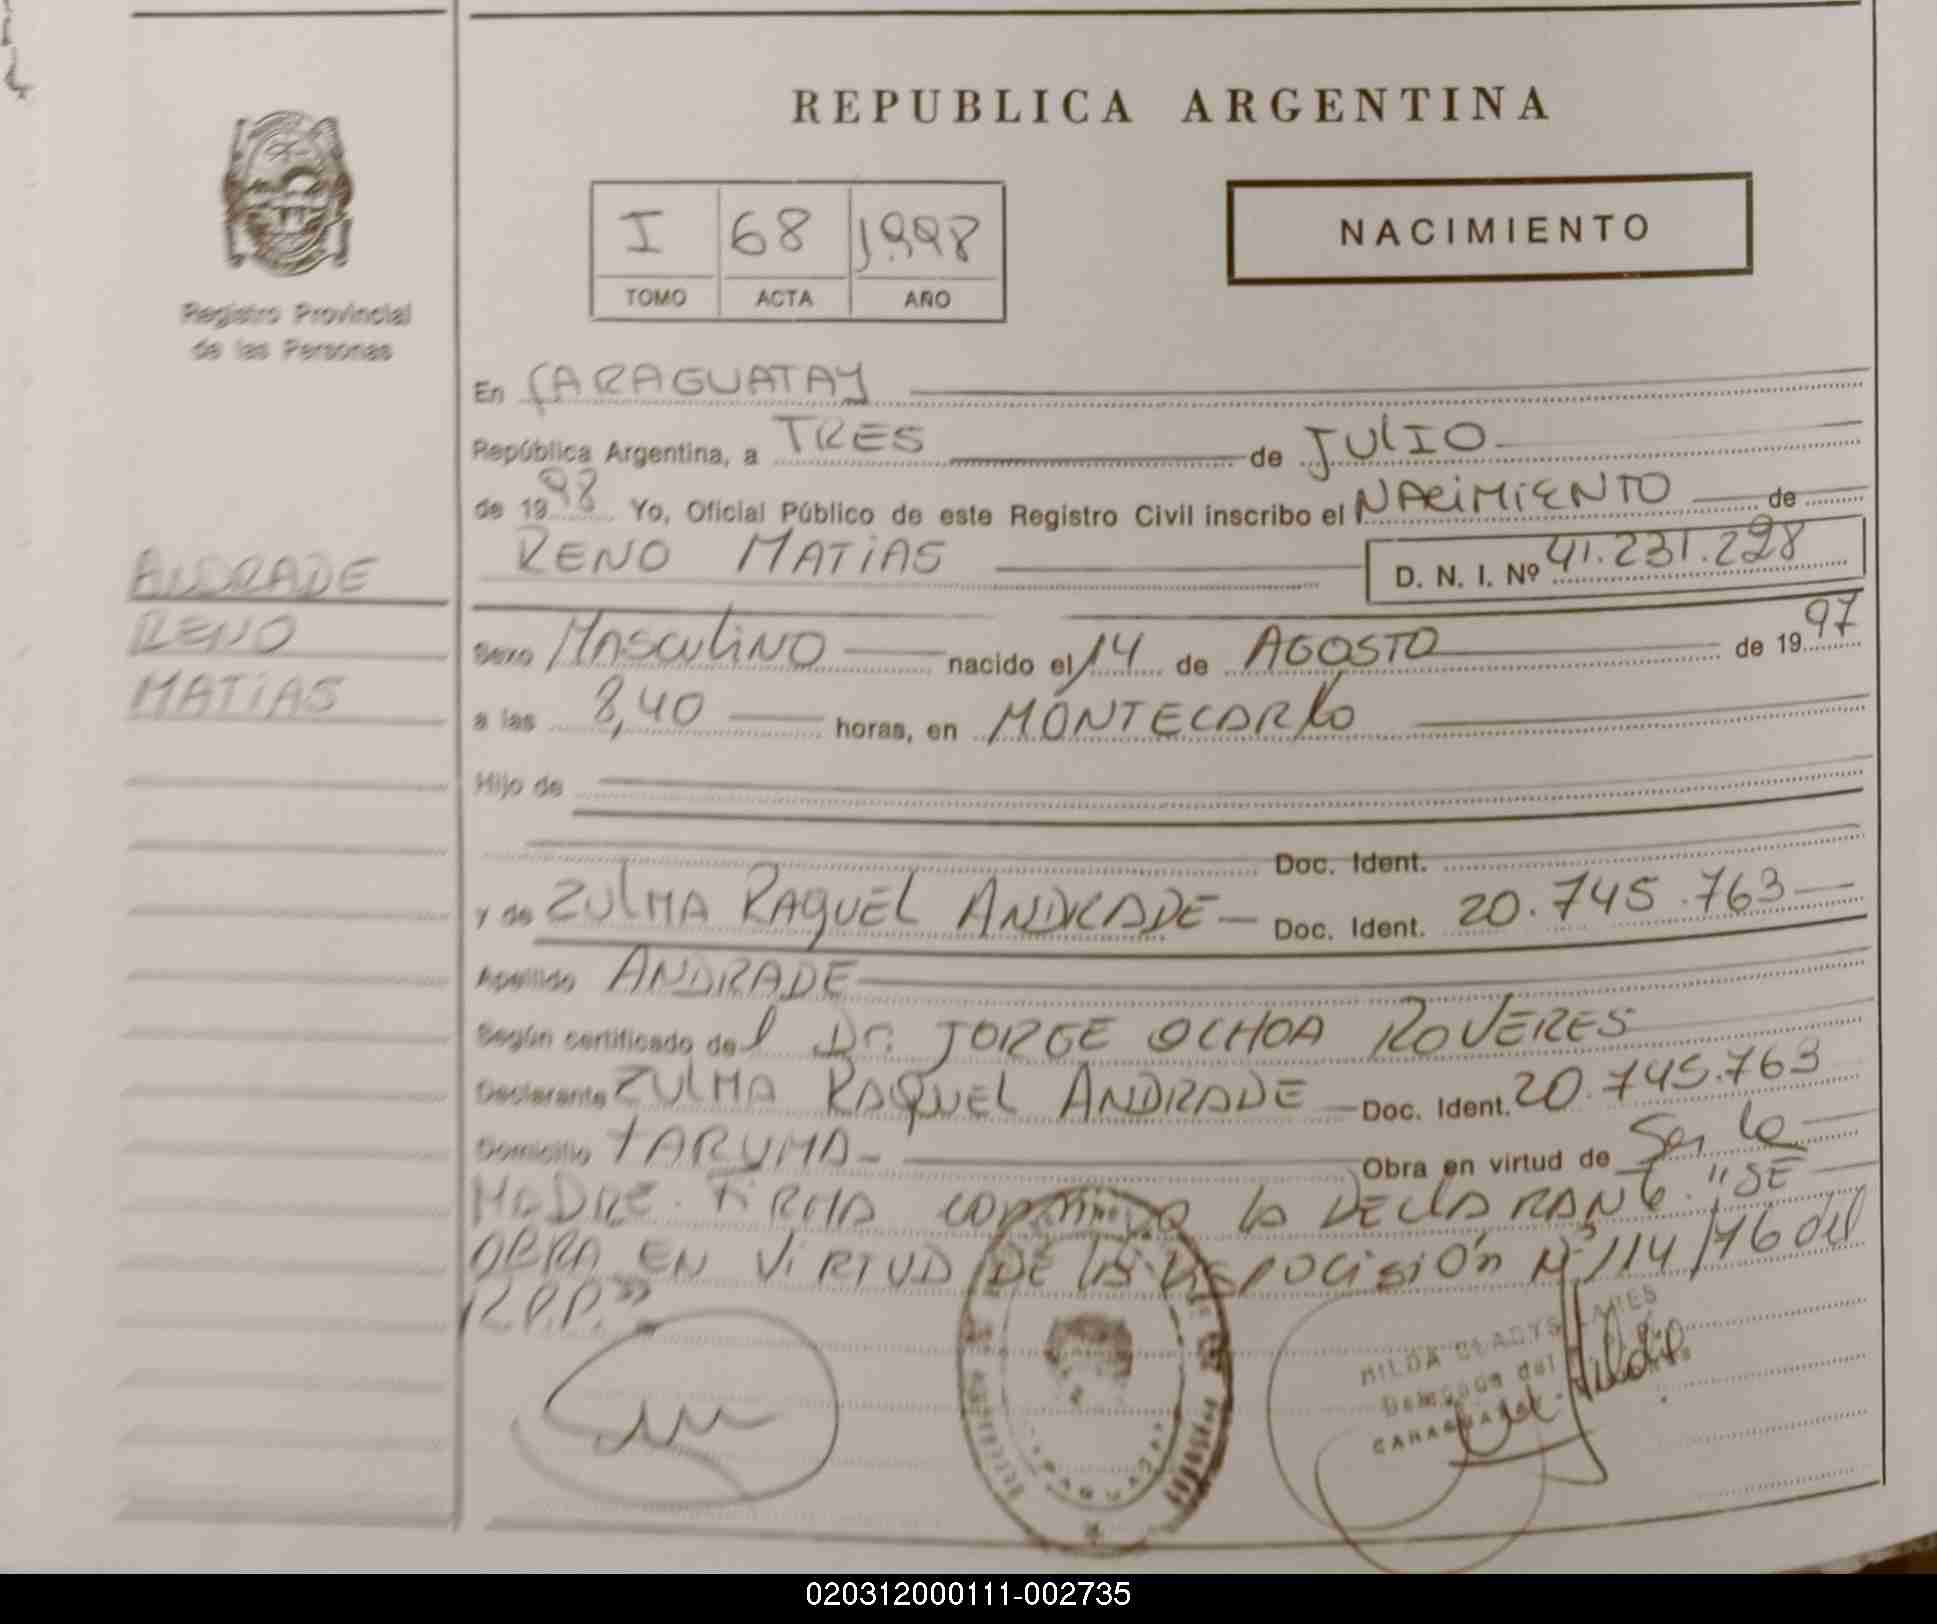 REPUBLICA ARGENTINA
Registro Provincial
de las Personas
I 68 1.998
TOMO ACTA AÑO
NACIMIENTO
En CARAGUATAY
República Argentina, a TRES de JULIO
de 1998 Yo, Oficial Público de este Registro Civil inscribo el NACIMIENTO de
RENO MATIAS D. N. I. Nº 41.231.228
ANDRADE
RENO
MATIAS
Sexo MASCULINO nacido el 14 de AGOSTO de 1997
a las 8,40 horas, en MONTECARLO
Hijo de
Doc. Ident.
y de ZULMA RAQUEL ANDRADE Doc. Ident. 20.745.763
Apellido ANDRADE
Según certificado del Dr. JORGE OCHOA ROVERES
Declarante ZULMA RAQUEL ANDRADE Doc. Ident. 20.745.763
Domicilio TARUMA Obra en virtud de Ser la
MADRE. FIRMA CONMIGO la DECLARANTE. "SE
OBRA EN VIRTUD DE LA Nº 114/76 del
R.P.P."
HILDA GLADYS
Delegada del
CARAGUATAY
020312000111-002735